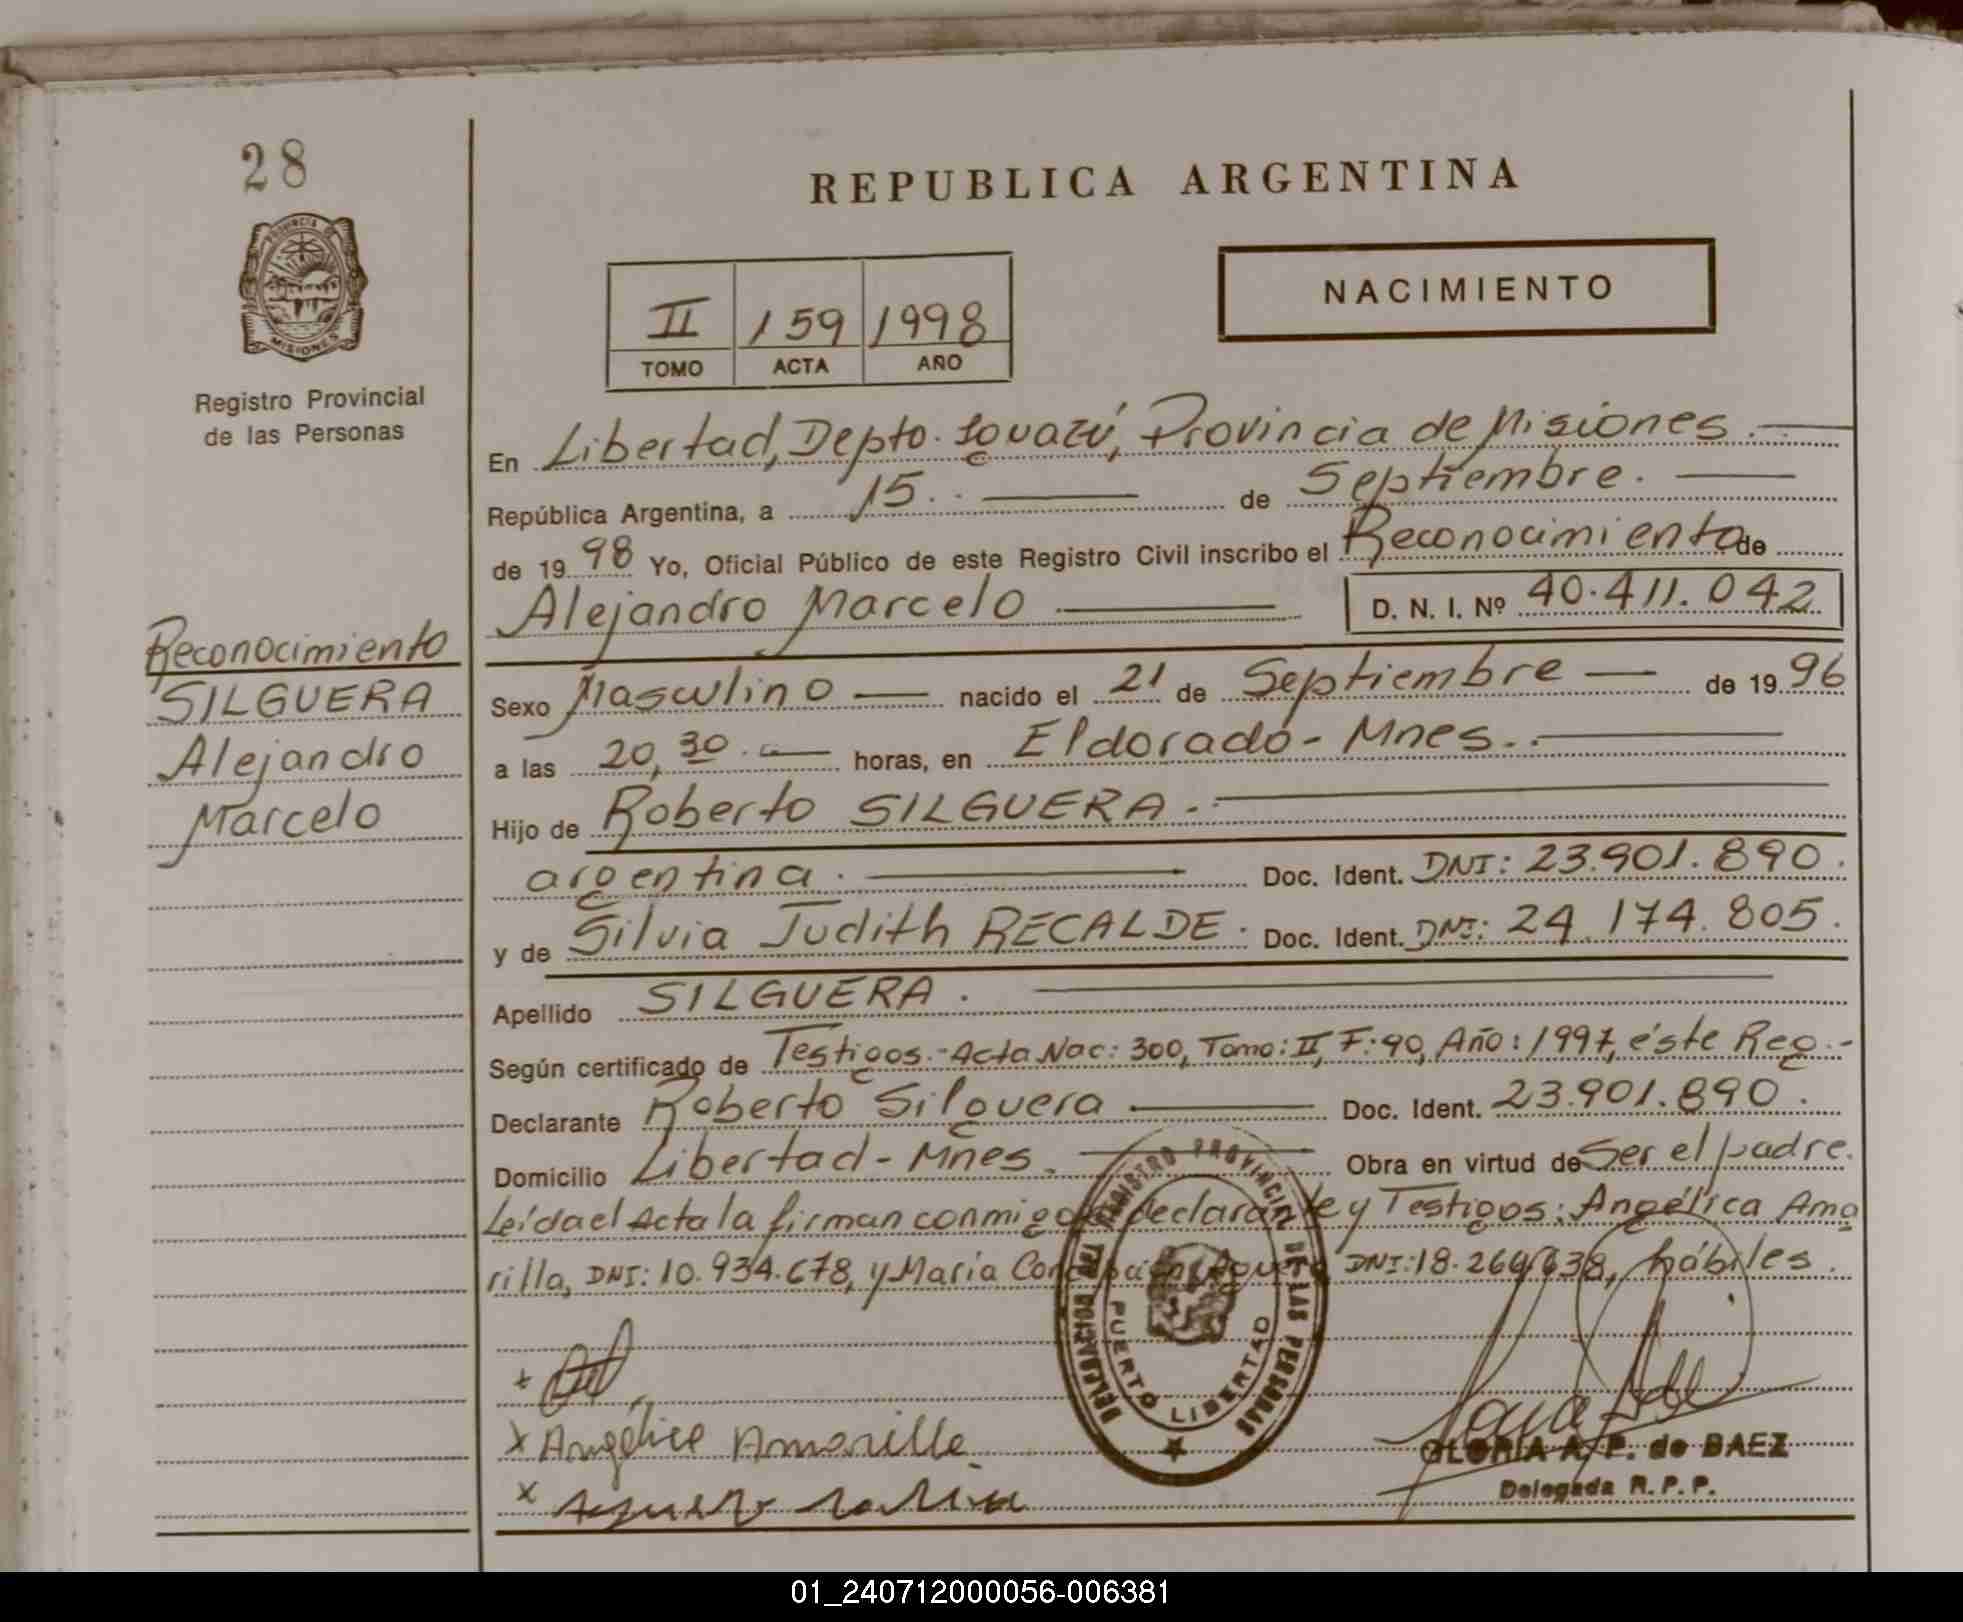 28
PROVINCIA DE
MISIONES
Registro Provincial
de las Personas
REPUBLICA ARGENTINA
NACIMIENTO
II 159 1998
TOMO ACTA AÑO
En Libertad, Depto. Iguazú, Provincia de Misiones.
República Argentina, a 15. de Septiembre.
de 1998 Yo, Oficial Público de este Registro Civil inscribo el Reconocimiento de
Alejandro Marcelo D. N. I. Nº 40.411.042
Reconocimiento
SILGUERA
Alejandro
Marcelo
Sexo Masculino nacido el 21 de Septiembre de 1996
a las 20,30. horas, en Eldorado - Mnes.
Hijo de Roberto SILGUERA.
argentina. Doc. Ident. DNI: 23.901.890.
y de Silvia Judith RECALDE. Doc. Ident. DNI: 24.174.805.
Apellido SILGUERA.
Según certificado de Testigos.- Acta Nac: 300, Tomo: II, F: 90, Año: 1997, éste Reg.-
Declarante Roberto Silguera Doc. Ident. 23.901.890.
Domicilio Libertad - Mnes. Obra en virtud de Ser el padre.
Leída el Acta la firman conmigo declarante y Testigos: Angélica Ama
rilla, DNI: 10.934.678, y María Concepción Aguero DNI: 18.264.638, hábiles.
REGISTRO PROVINCIAL DE LAS PERSONAS
DELEGACION
PUERTO LIBERTAD
x
x Angélica Amarilla
x
GLORIA A. P. de BAEZ
Delegada R. P. P.
01_240712000056-006381